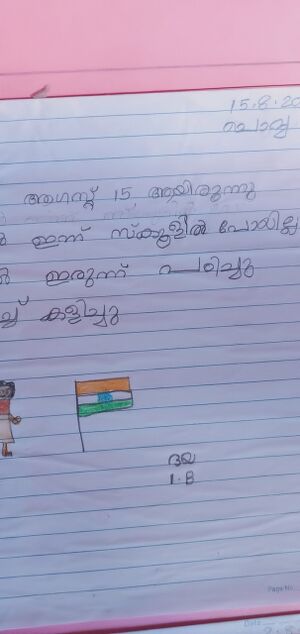 15.8.20
ചൊവ്വ
ആഗസ്റ്റ് 15 ആയിരുന്നു
ഇന്ന് സ്കൂളിൽ പോയില്ല
ഇരുന്ന് പഠിച്ചു
കളിച്ചു
ദയ
1.B
Page No.
Date